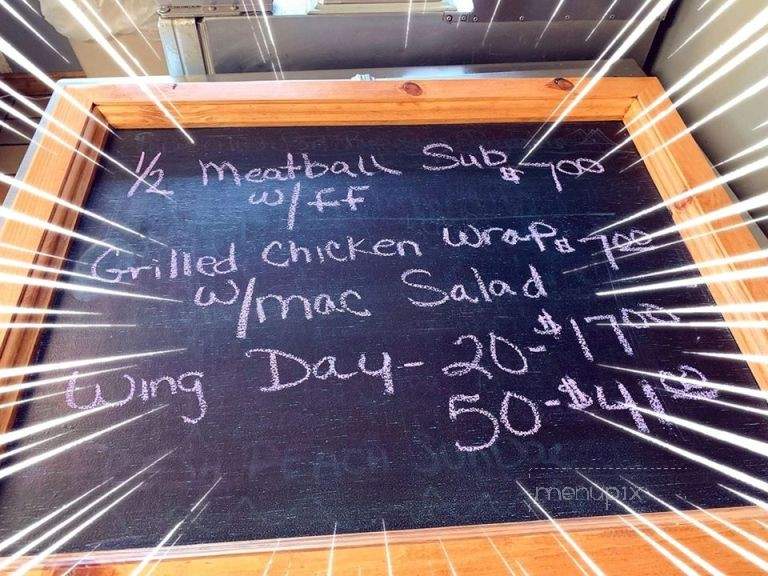 1/2 Meatball Sub $7.00
w/ff
Grilled Chicken Wrap $7.00
w/mac Salad
Wing Day - 20 - $17.00
50 - $41.00
PEACH
menupix